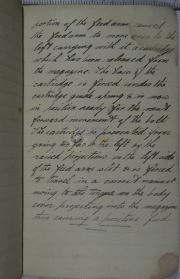 portion of the feed arm, cause
the feed arm to move over to the
left carrying with it a cartridge
which has been released from
the magazine. The base of the
cartridge is forced under the
cartridge guide spring & is now
in position ready for the next
forward movement of the bolt.
The cartridge is prevented from
going too far to the left by the
raised projections on the left side
of the feed arm slot & is forced
to travel in a correct manner
owing to the tongue on the body
cover projecting onto the magazine
thus ensuring a positive feed.